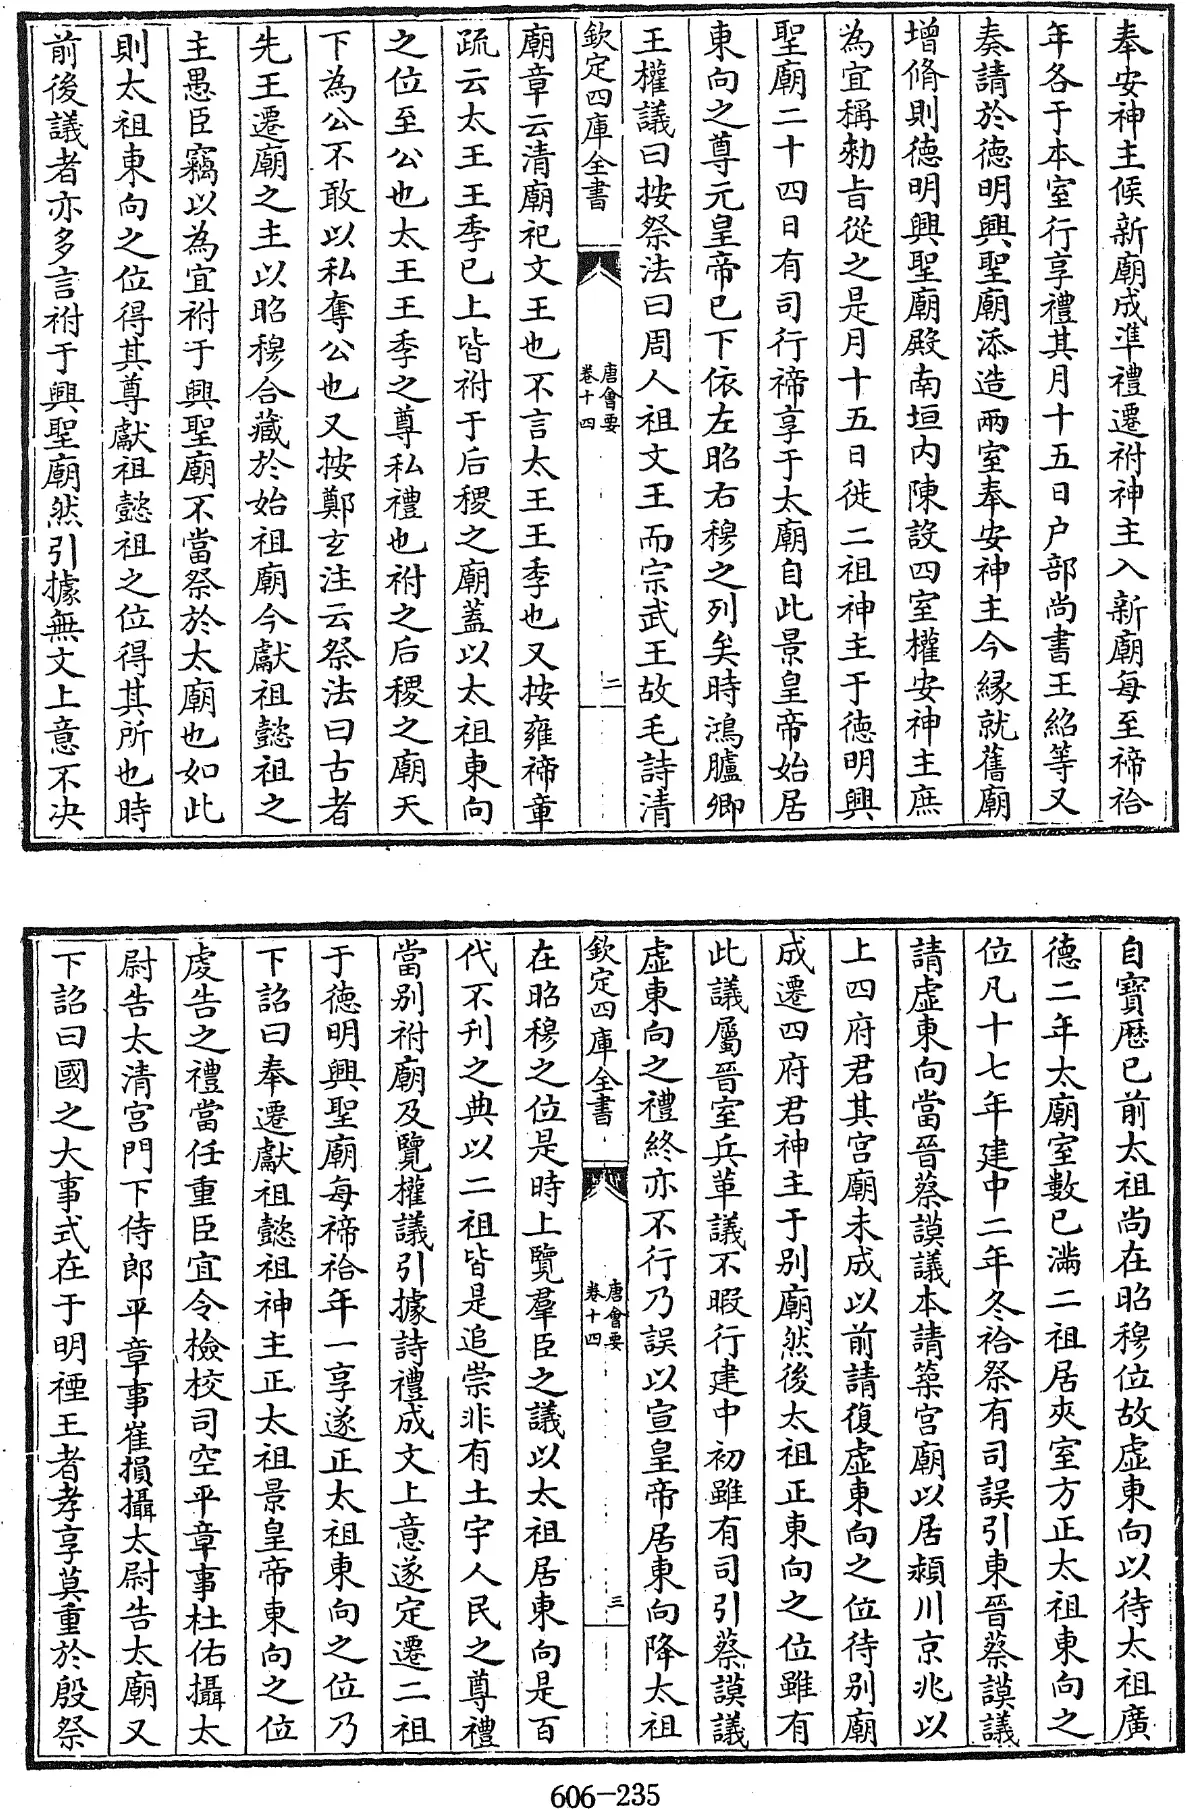 奉安神主候新廟成準禮遷祔神主入新廟每至禘祫
年各于本室行享禮其月十五日户部尚書王紹等又
奏請於德明興聖廟添造兩室奉安神主今緣就舊廟
增脩則德明興聖廟殿南垣内陳設四室權安神主庶
為宜稱勑旨從之是月十五日徙二祖神主于德明興
聖廟二十四日有司行禘享于太廟自此景皇帝始居
東向之尊元皇帝已下依左昭右穆之列矣時鴻臚卿
王權議曰按祭法曰周人祖文王而宗武王故毛詩清
欽定四庫全書
唐會要
卷十四
二
廟章云清廟祀文王也不言太王王季也又按雍禘章
疏云太王王季已上皆祔于后稷之廟蓋以太祖東向
之位至公也太王王季之尊私禮也祔之后稷之廟天
下為公不敢以私奪公也又按鄭玄注云祭法曰古者
先王遷廟之主以昭穆合藏於始祖廟今獻祖懿祖之
主愚臣竊以為宜祔于興聖廟不當祭於太廟也如此
則太祖東向之位得其尊獻祖懿祖之位得其所也時
前後議者亦多言祔于興聖廟然引據無文上意不决
自寶歷已前太祖尚在昭穆位故虛東向以待太祖廣
德二年太廟室數已滿二祖居夾室方正太祖東向之
位凡十七年建中二年冬祫祭有司誤引東晉蔡謨議
請虛東向當晉蔡謨議本請築宫廟以居潁川京兆以
上四府君其宫廟未成以前請復虛東向之位待别廟
成遷四府君神主于别廟然後太祖正東向之位雖有
此議屬晉室兵革議不暇行建中初雖有司引蔡謨議
虛東向之禮終亦不行乃誤以宣皇帝居東向降太祖
欽定四庫全書
唐會要
卷十四
三
在昭穆之位是時上覽羣臣之議以太祖居東向是百
代不刊之典以二祖皆是追崇非有土宇人民之尊禮
當别祔廟及覽權議引據詩禮成文上意遂定遷二祖
于德明興聖廟每禘祫年一享遂正太祖東向之位乃
下詔曰奉遷獻祖懿祖神主正太祖景皇帝東向之位
虔告之禮當任重臣宜令檢校司空平章事杜佑攝太
尉告太清宫門下侍郎平章事崔損攝太尉告太廟又
下詔曰國之大事式在于明禋王者孝享莫重於殷祭
606-235